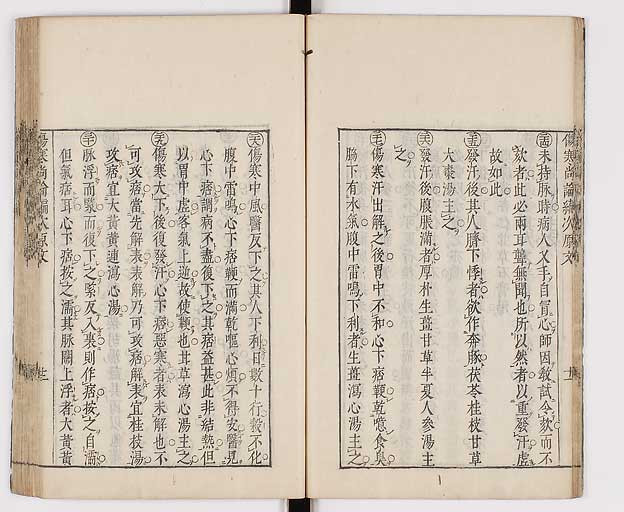 傷寒尚論編次原文
㊃未持脉時病人叉手自冒心師因教試令欬而不
欬者此必兩耳聾無聞也所以然者以重發汗虛
故如此
發汗後其人臍下悸者欲作奔豚茯苓桂枝甘草
大棗湯主之
發汗後腹脹滿者厚朴生薑甘草半夏人參湯主
之
傷寒汗出解之後胃中不和心下痞鞕乾噫食臭
脇下有水氣腹中雷鳴下利者生薑瀉心湯主之
傷寒中風醫反下之其人下利日數十行穀不化
腹中雷鳴心下痞鞕而滿乾嘔心煩不得安醫見
心下痞謂病不盡復下之其痞益甚此非結熱但
以胃中虛客氣上逆故使鞕也甘草瀉心湯主之
傷寒大下後復發汗心下痞惡寒者表未解也不
可攻痞當先解表表解乃可攻痞解表宜桂枝湯
攻痞宜大黃黃連瀉心湯
脉浮而緊而復下之緊反入裏則作痞按之自濡
但氣痞耳心下痞按之濡其脉關上浮者大黃黃
傷寒尚論編次原文